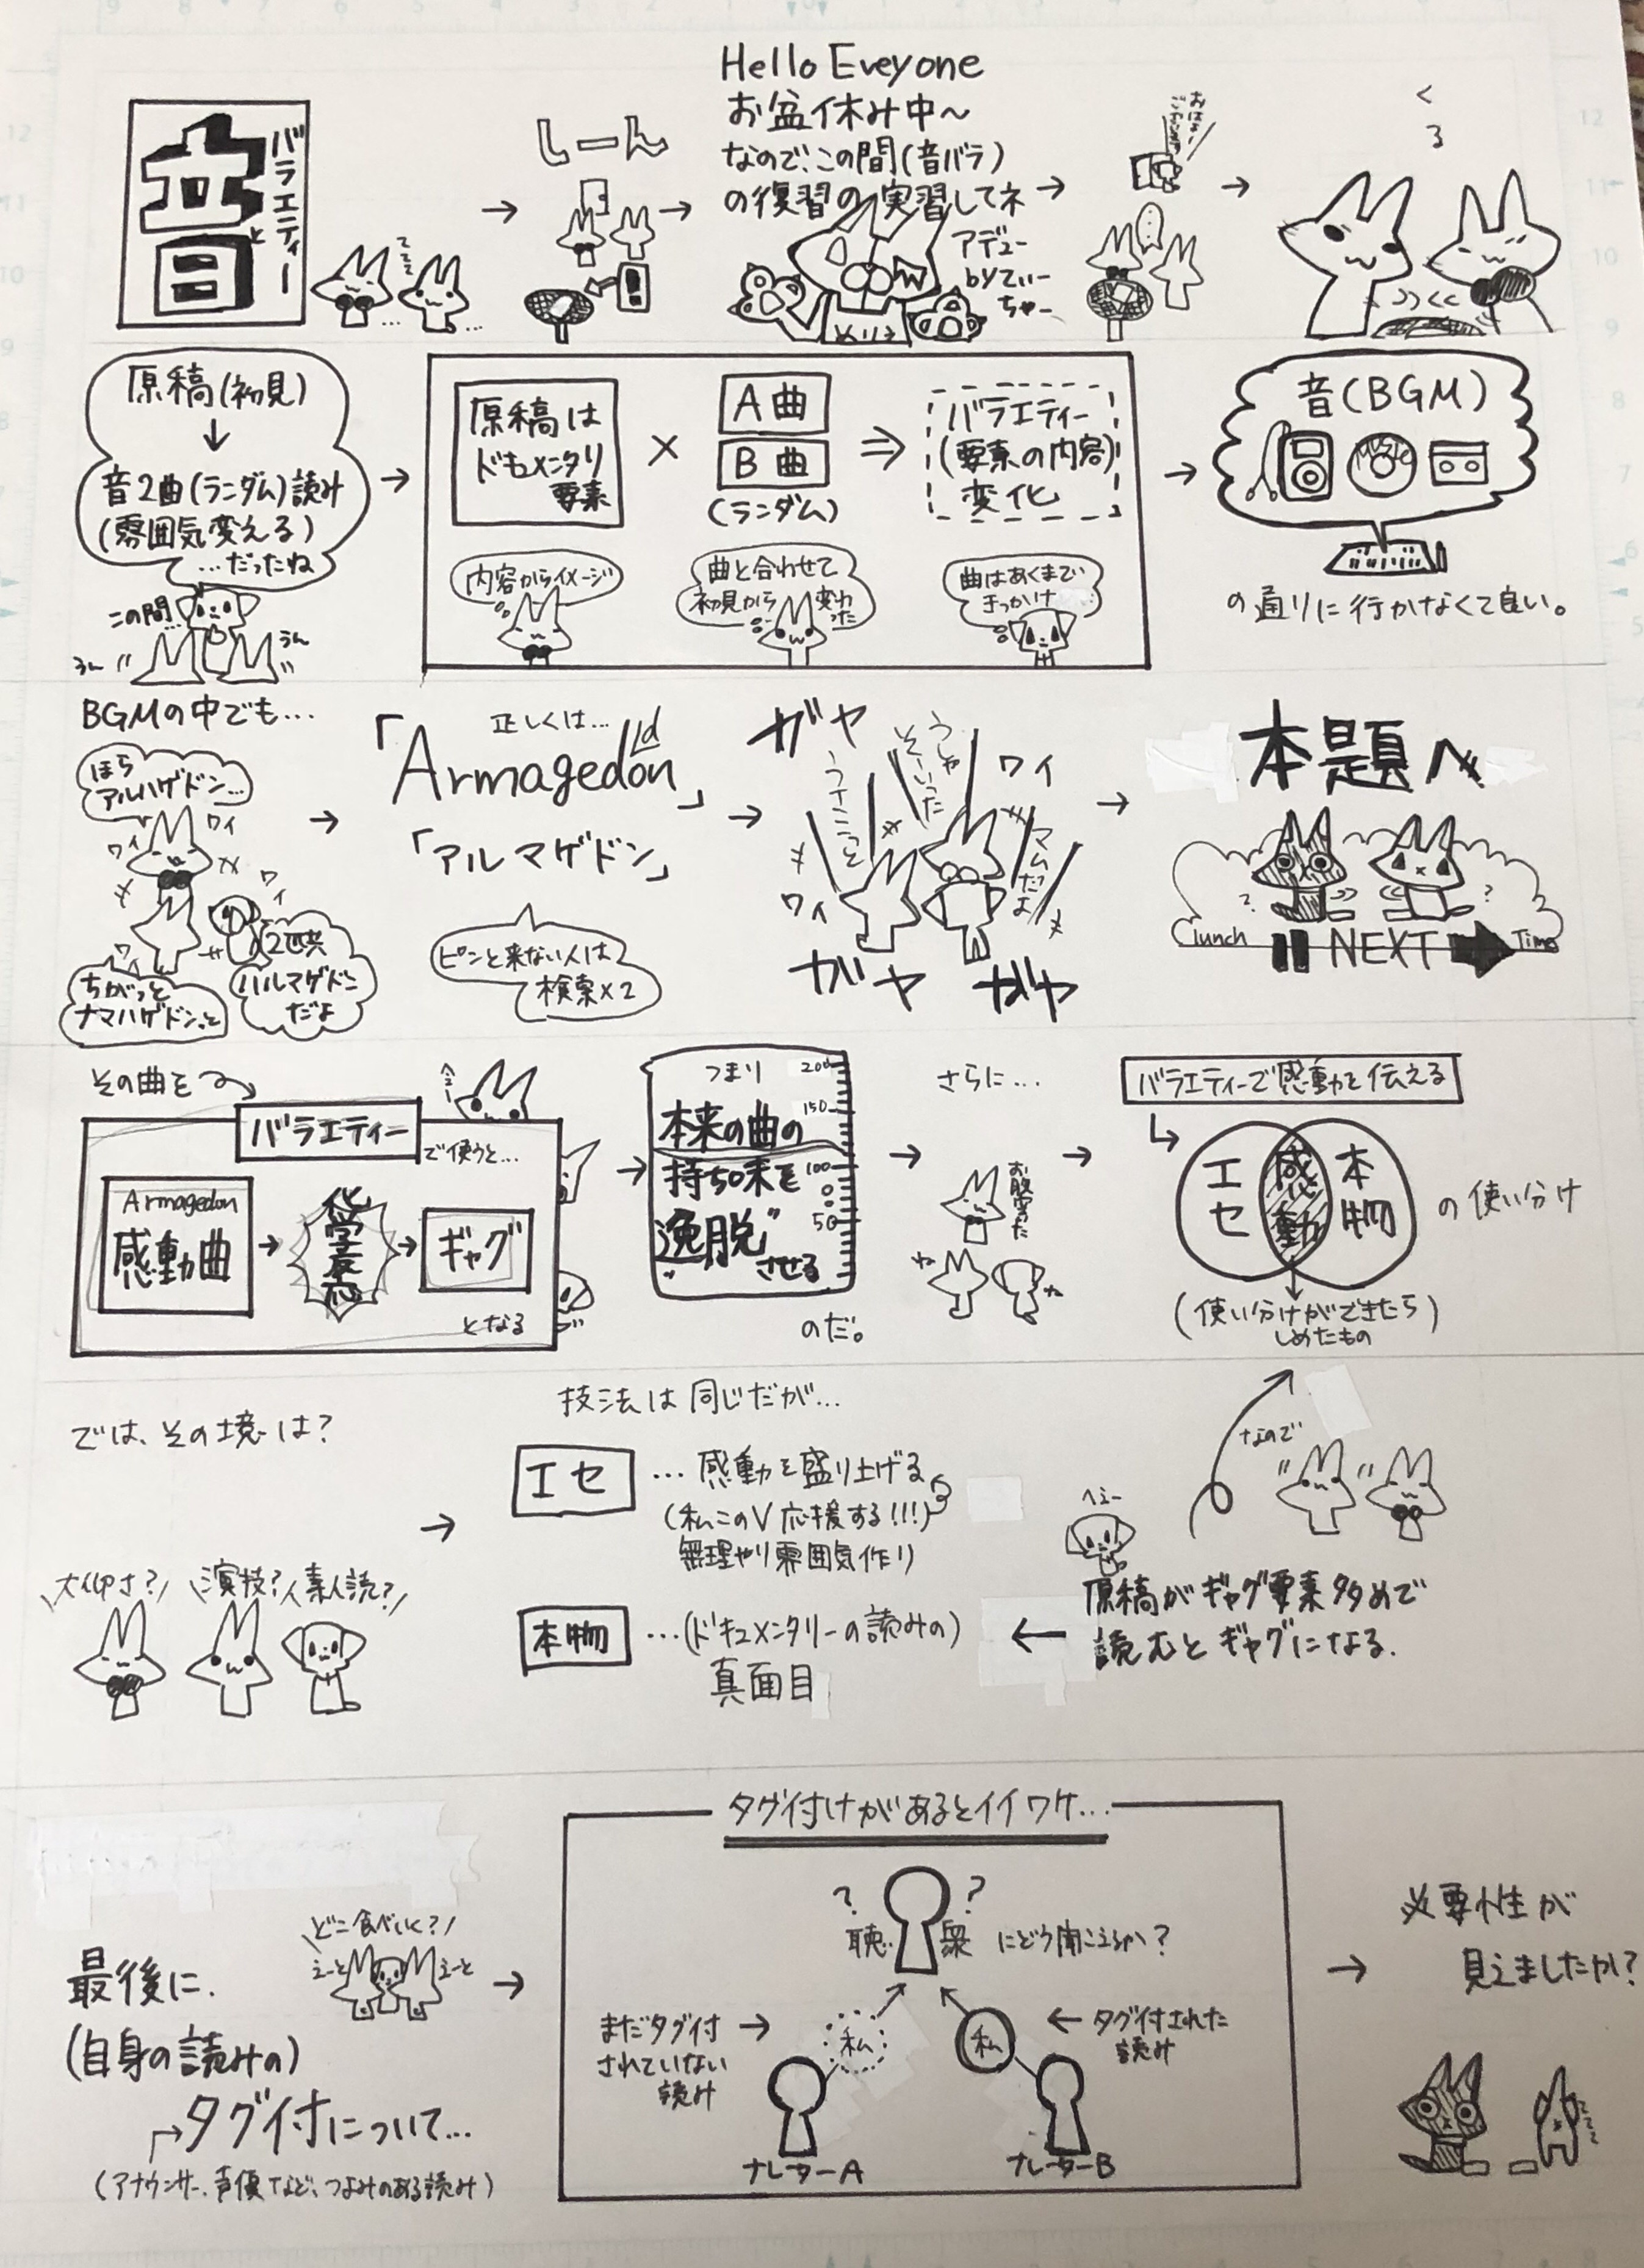 音と
バラエティー
しーん
Hello Eveyone
お盆休み中〜
なので、この間(音バラ)
の復習の実習してネ
アデュー
byてぃー
ちゃー
おはよー
ございます
くる
原稿(初見)
↓
音2曲(ランダム)読み
(雰囲気変える)
…だったね
この間…
うん
うん
原稿は
ドキュメンタリ
要素
×
A曲
B曲
(ランダム)
⇒
バラエティー
(要素の内容)
変化
内容からイメージ
曲と合わせて
初見から変わった
曲はあくまで
きっかけ
音(BGM)
の通りに行かなくて良い。
BGMの中でも…
ほら
アルハゲドン…
ワイ
ワイ
ワイ
ちがうっと
ナマハゲドンっと
2匹共
ハルマゲドン
だよ
正しくは…
「Armagedon」
「アルマゲドン」
ピンと来ない人は
検索×2
ガヤ
ワイ
ワイ
ガヤ
ガヤ
本題へ
lunch
Time
NEXT
その曲を
バラエティー
で使うと…
Armagedon
感動曲
化学反応
ギャグ
となる
つまり
本来の曲の
持ち味を
逸脱
させる
200
150
100
50
のだ。
さらに…
お腹空いた
ね
ね
バラエティーで感動を伝える
エセ
感動
本物
の使い分け
(使い分けができたら
しめたもの)
では、その境は?
大仰さ?
演技?
素人読?
技法は同じだが…
エセ
…感動を盛り上げる
(私このV応援する!!!)
無理やり雰囲気作り
本物
…(ドキュメンタリーの読みの)
真面目
なので
へぇー
原稿がギャグ要素多めで
読むとギャグになる.
最後に.
(自身の読みの)
タグ付について…
(アナウンサー、声優など、つよみのある読み)
どこ食べいく?
えーと
えーと
タグ付けがあるとイイワケ…
?
?
聴衆にどう聞こえるか?
まだタグ付
されていない
読み
私
私
タグ付された
読み
ナレーターA
ナレーターB
必要性が
見えましたか?